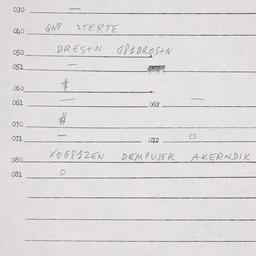 030 —
040 QNP STERTE
050 DRESTN GP1DROSTN
051 —
060 $
061 — 062 —
070 #
071 — 072 O
080 XOG81ZEN DEMPUJER AKERNDIK
081 O